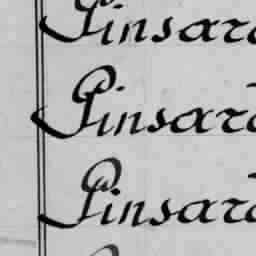 Pinsard
Pinsard
Pinsard